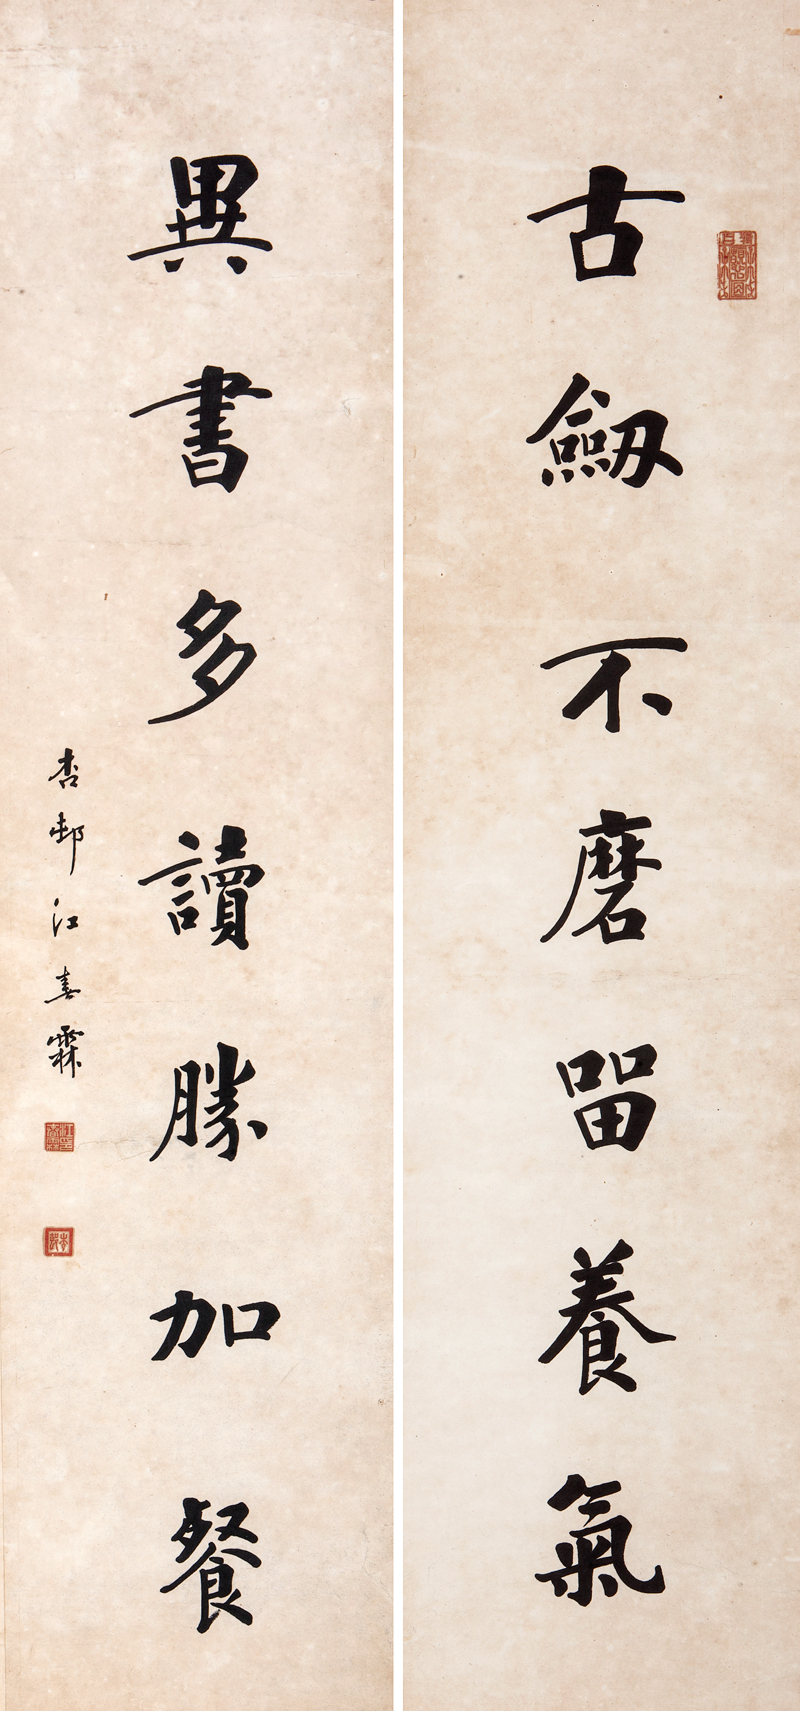 古劔不磨畱養氣
異書多讀勝加餐
杏邨江春霖